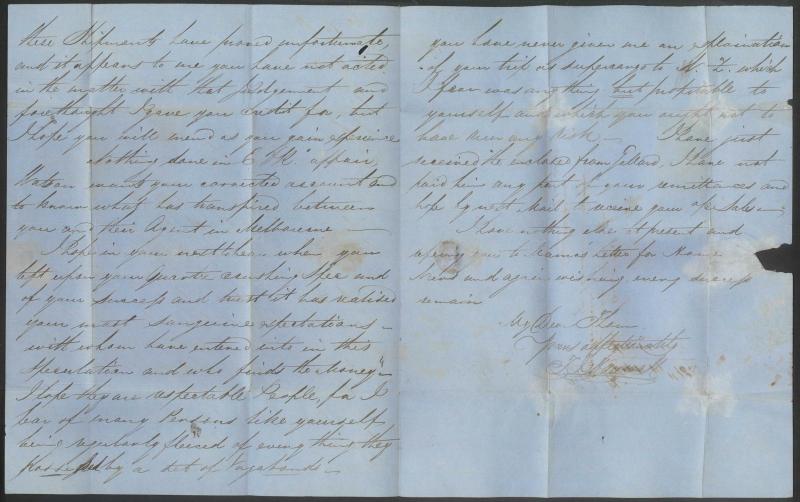 these Shipments have proved unfortunate,
and it appears to me you have not acted
in the matter with that judgement and
forethought I gave you credit for, but
I hope you will mend as you gain xperience
Nothing done in E affair,
Watson wants your corrected account and
to know what has transpired between
you and their Agent in Melbourne —
I hope in your next to hear when you
left upon your Quartz crushing Spec and
of your success and trust it has realised
your most sanguine xpectations —
with whom have entered into in this
Speculation and who finds the Money —
I hope they are respectable People, for I
hear of many Persons like yourself
being regularly fleeced of every thing they
possessed by a set of Vagabonds —
you have never given me an xplaination
of your trip as supercargo to N. Z. which
I fear was anything but profitable to
yourself and which you ought not to
have run any risk — I have just
received the inclose from I have not
paid him any part of your remittances and
hope by next Mail to receive your a/c Sales —
I have nothing else at present and
refering you to Mama's letter for Home
News and again wishing every success
remain
My Dear Thom
Yours affectionately